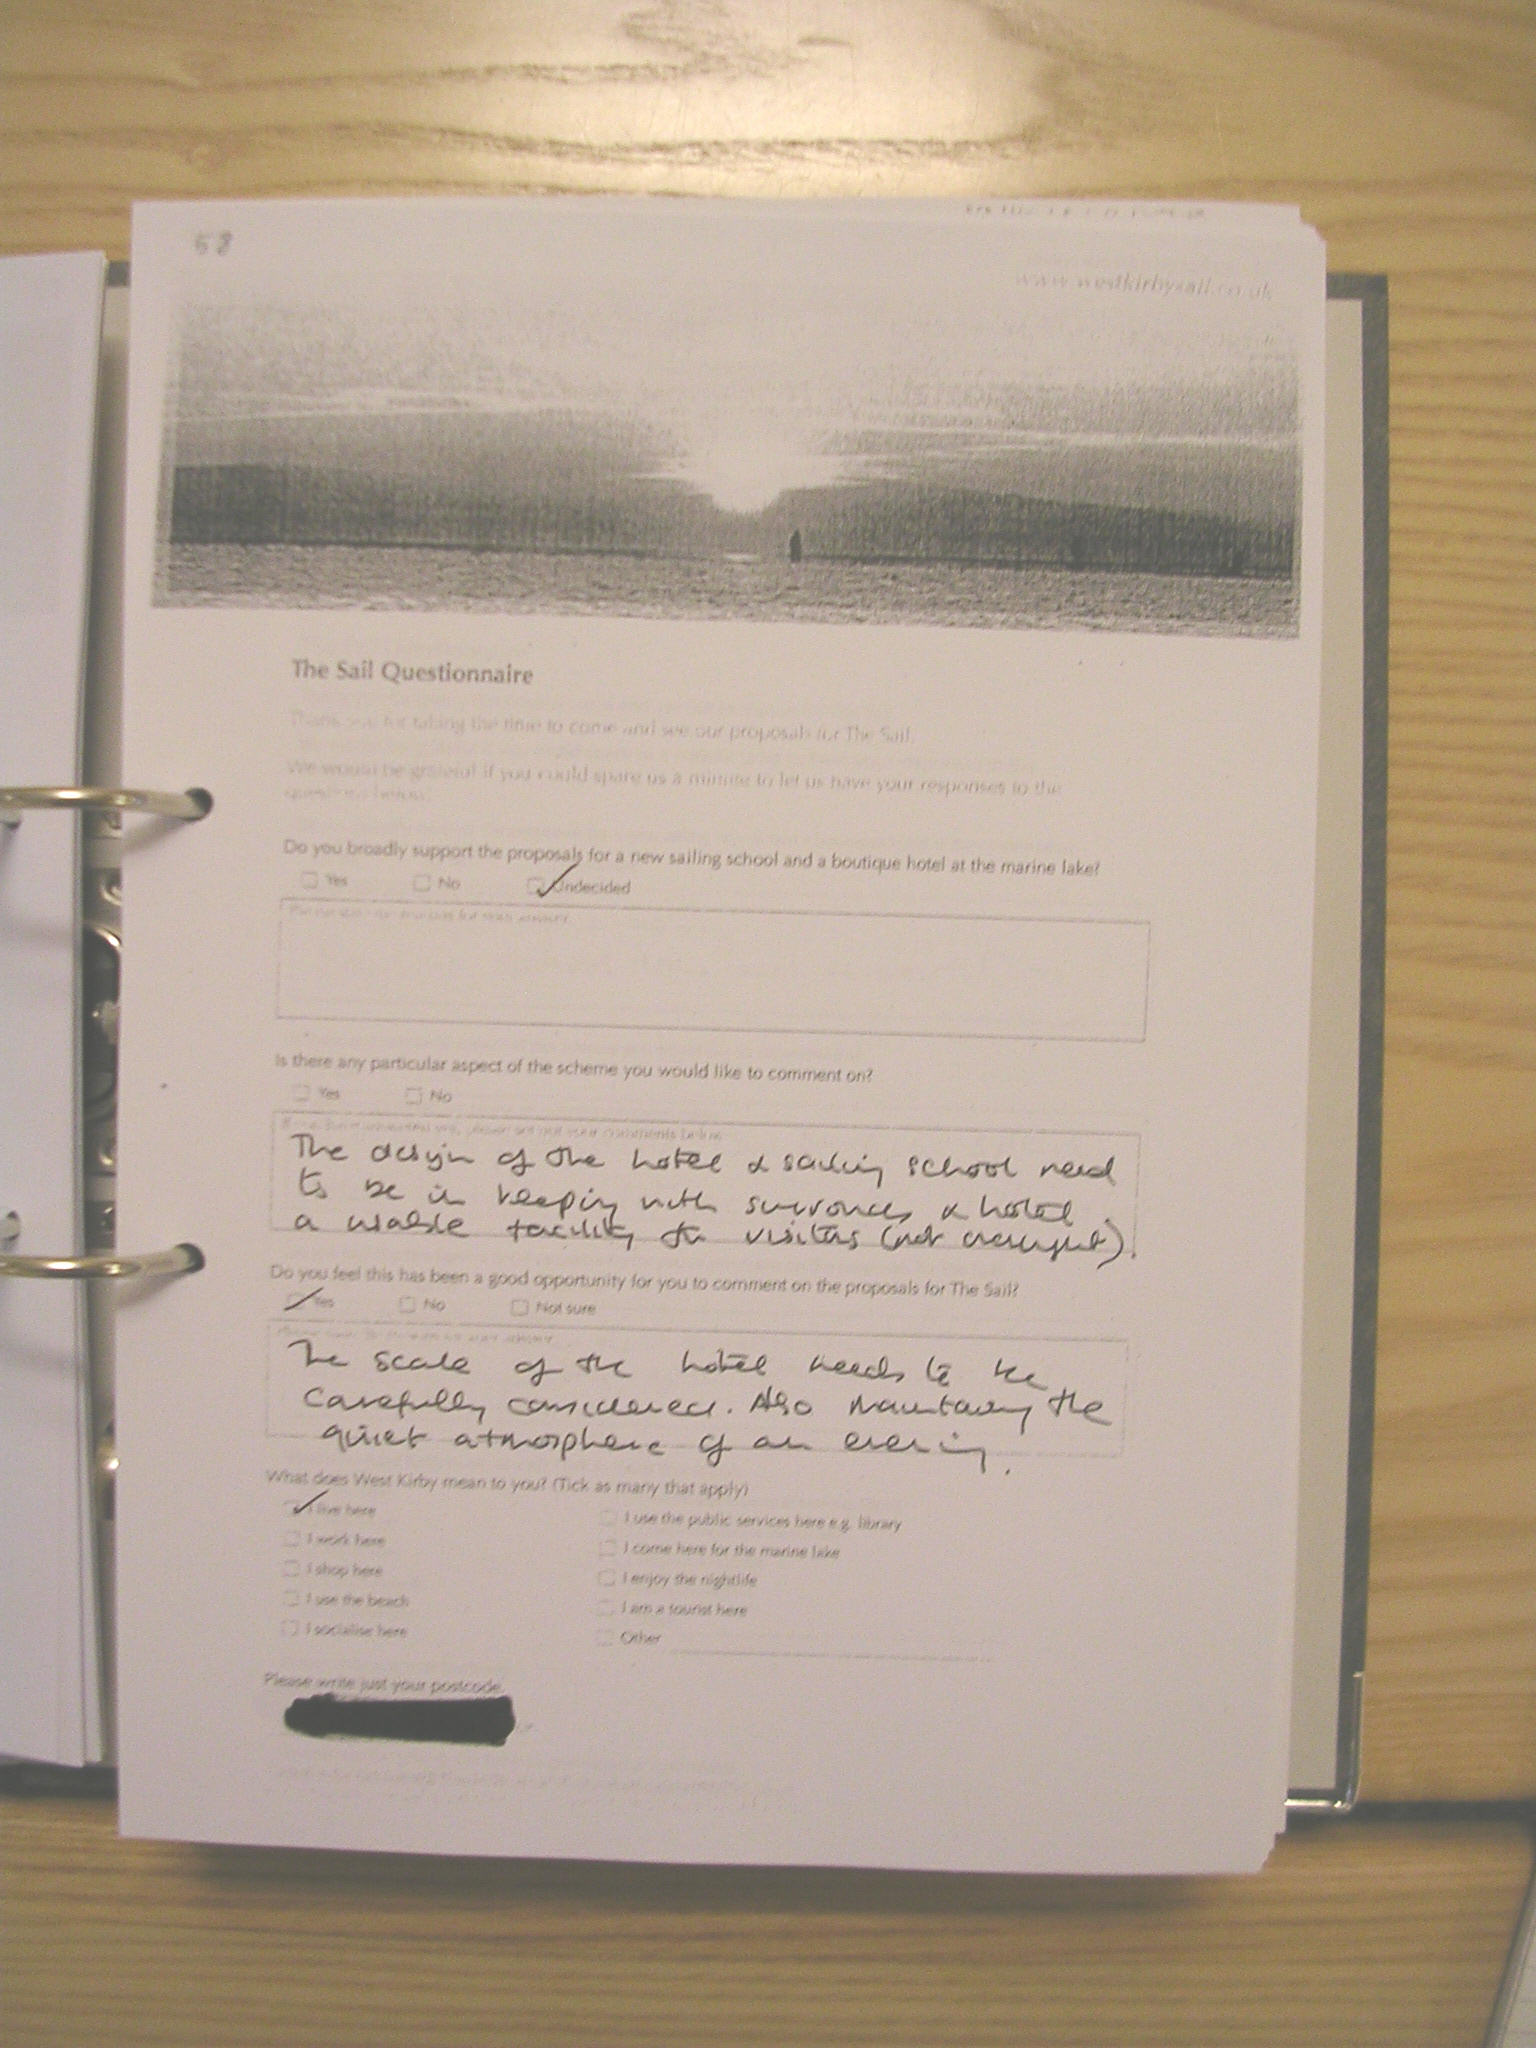 58
www.westkirbysail.co.uk
The Sail Questionnaire
Thank you for taking the time to come and see our proposals for The Sail.
We would be grateful if you could spare us a minute to let us have your responses to the
questions below.
Do you broadly support the proposals for a new sailing school and a boutique hotel at the marine lake?
Yes No Undecided
Is there any particular aspect of the scheme you would like to comment on?
Yes No
The design of the hotel & sailing school need
to be in keeping with & hotel
a usable facility for visitors (not
Do you feel this has been a good opportunity for you to comment on the proposals for The Sail?
Yes No Not sure
The scale of the hotel needs to be
carefully considered. Also maintaining the
quiet atmosphere of an evening.
What does West Kirby mean to you? (Tick as many that apply)
I live here I use the public services here e.g. library
I work here I come here for the marine lake
I shop here I enjoy the nightlife
I use the beach I am a tourist here
I socialise here Other
Please write just your postcode.